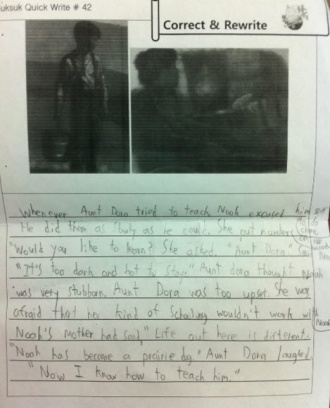 uksuk Quick Write # 42
Correct & Rewrite
Whenever Aunt Dora tried to teach Noah excused him
He did them as as he could. She put numbers
"Would you like to learn? She asked, "Aunt Dora"
"It's too dark and hot to stay." Aunt dora thought Noah
was very stubborn. Aunt Dora was too upset. She was
afraid that her kind of Schooling wouldn't work with
Noah's Mother had said "Life out here is different.
"Noah has become a prairie dg." Aunt Dora laughed.
"Now I know how to teach him."